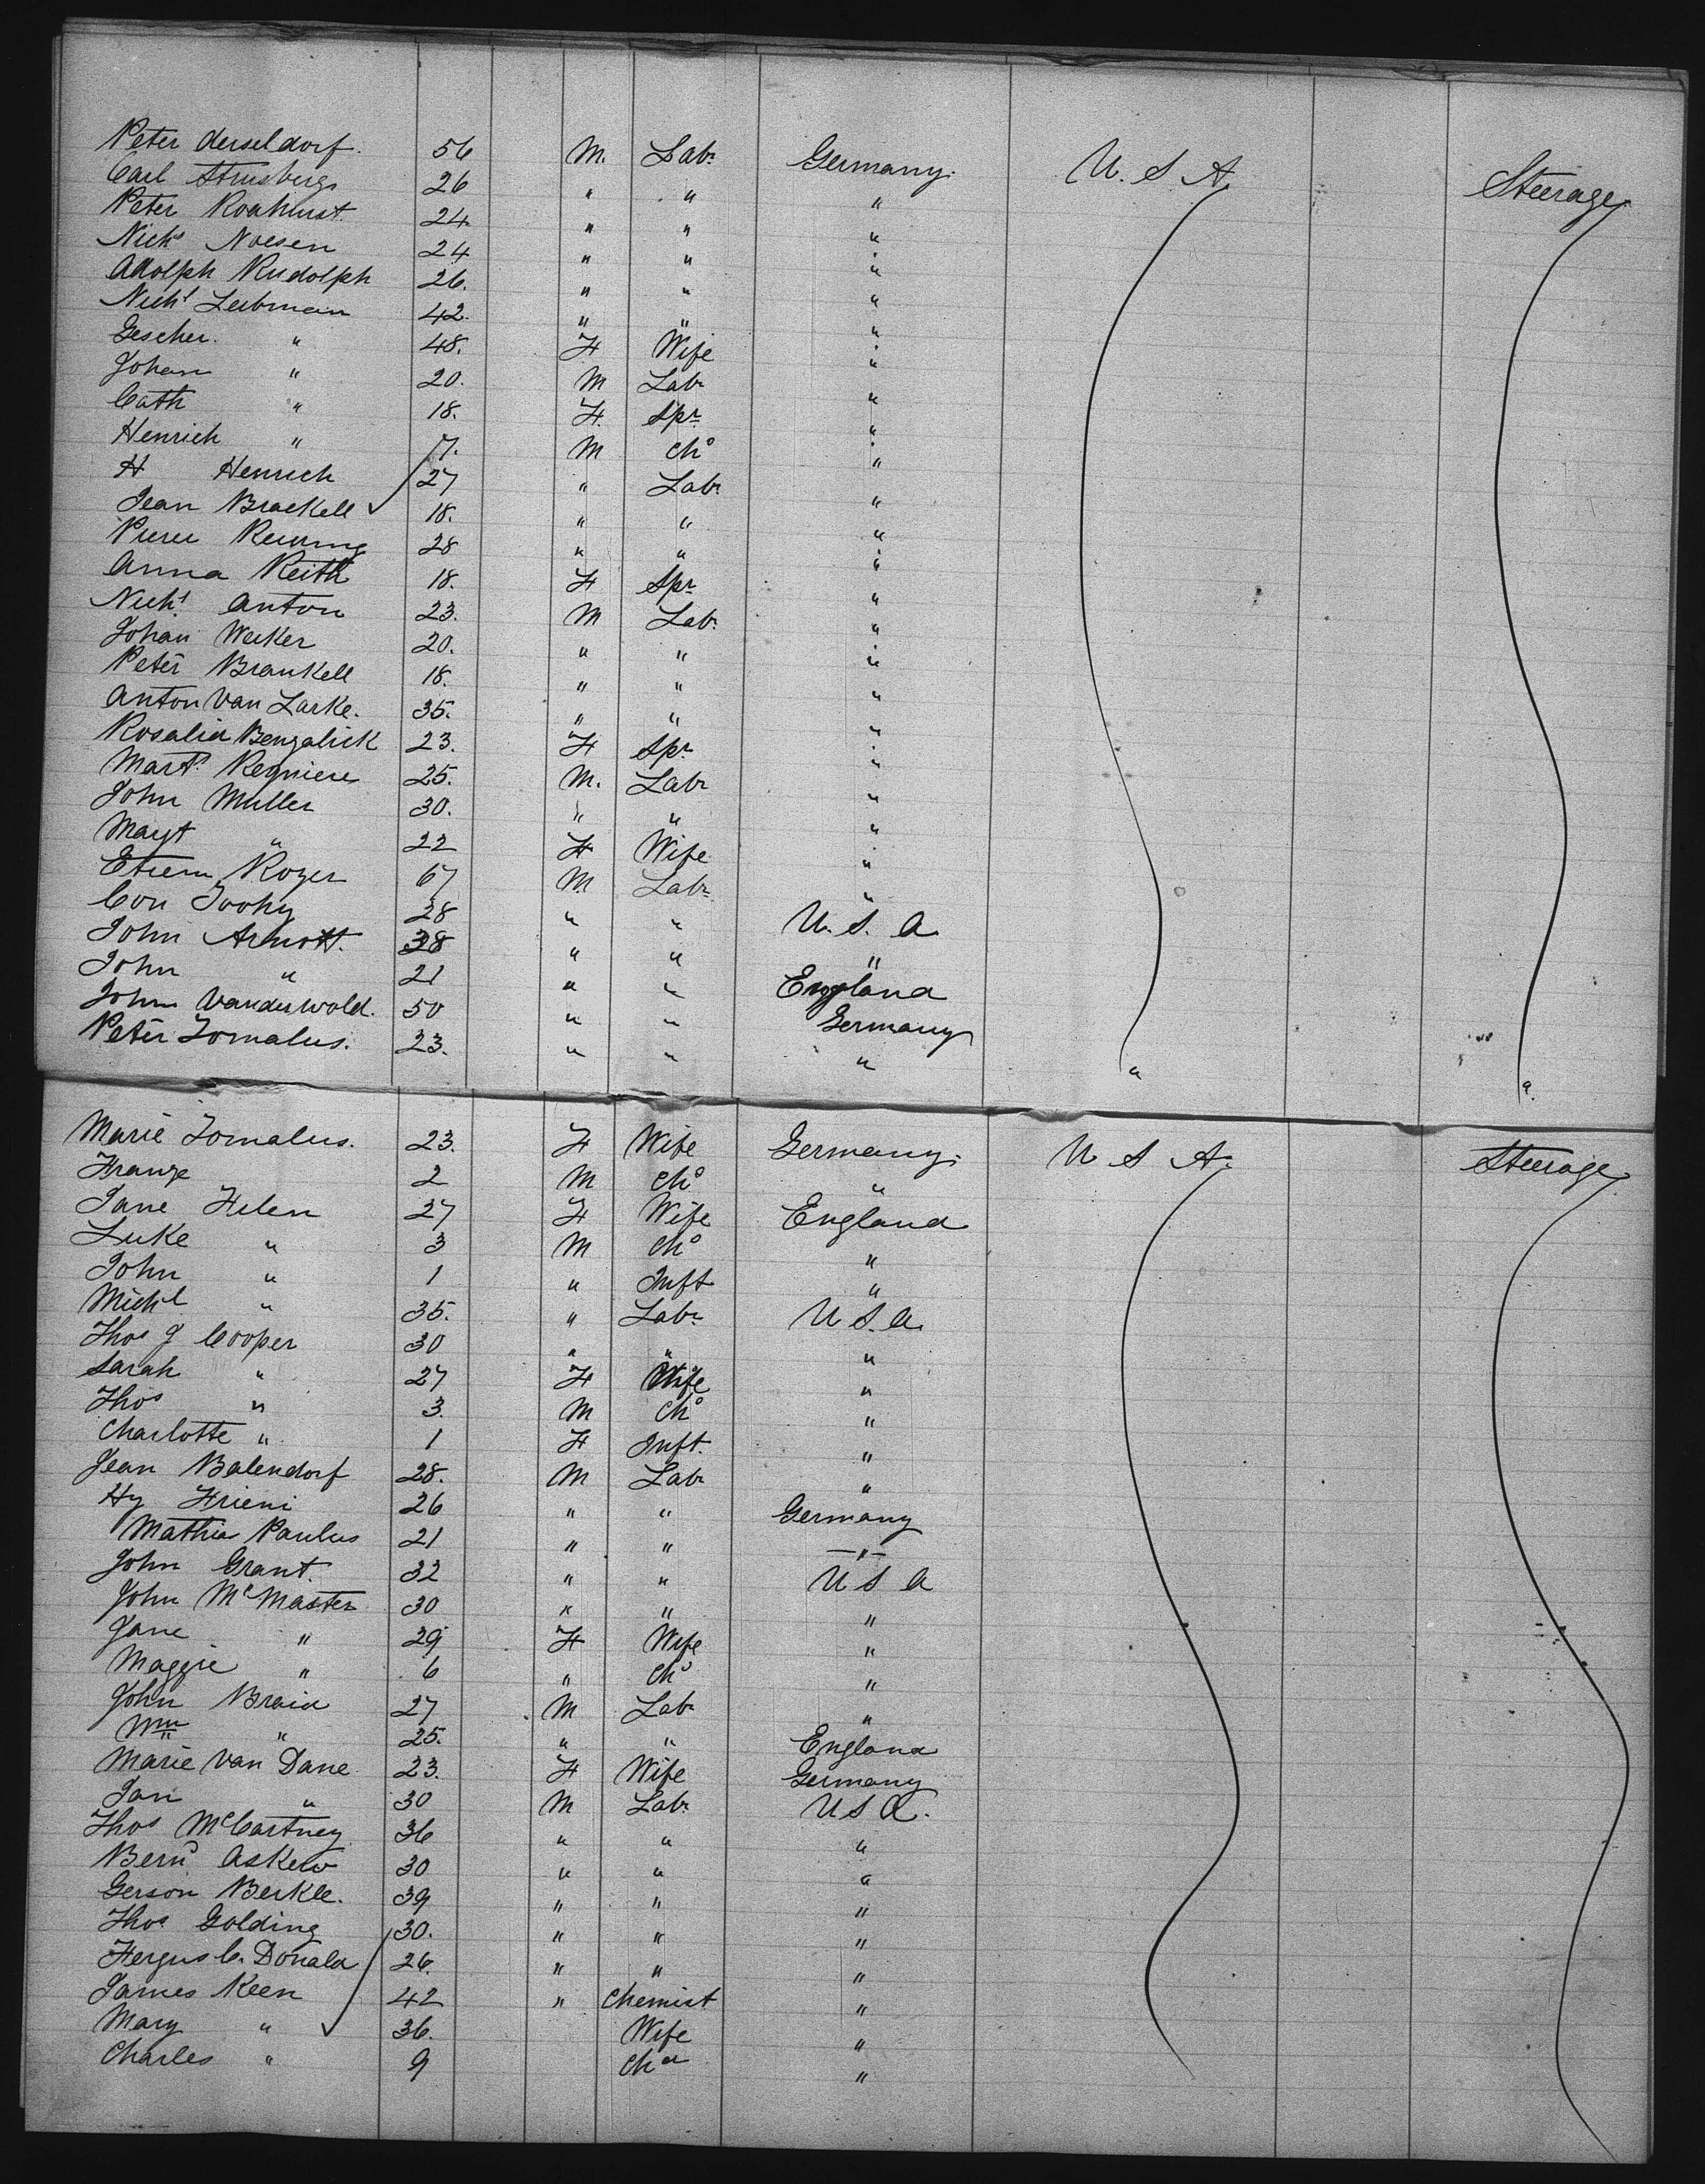 Peter derseldorf. 56 M. Labr Germany. U. S. A. Steerage
Carl Strusberg 26 " " "
Peter Roahurst 24. " " "
Nichs Noesen 24 " " "
Adolph Rudolph 26. " " "
Nichl Leibman 42. " " "
Gescher. " 48. F Wife "
Johan " 20. M Labr "
Cath " 18. F. Spr "
Henrich " 7. M Chd "
H Henrich 27 " Labr "
Jean Brackell 18. " " "
Pierre 28 " " "
Anna Keith 18. F Spr "
Nichl Anton 23. M Labr "
Johan Weiker 20. " " "
Peter Braunkell 18. " " "
Anton Van Larke. 35. " " "
Rosalia Bengalick 23. F Spr "
Mart. Regniere 25. M. Labr "
John Muller 30. " " "
Margt " 22 F Wife "
Etiem Rozer 67 M. Labr "
Con Toohy 28 " " U. S. A
John Arnott. 38 " " "
John " 21 " " England
John Vanderwold. 50 " " Germany
Peter Tomalus. 23. " " " " "
Marie Tomalus. 23. F Wife Germany. U S A. Steerage
Franze 2 M Chd "
Jane Helen 27 F Wife England
Luke " 3 M Chd "
John " 1 " Inft "
Michl " 35. " Labr U S. A.
Thos J Cooper 30 " " "
Sarah " 27 F Wife "
Thos " 3. M Chd "
Charlotte " 1 F Inft. "
Jean Balendorf 28. M Labr "
Hy Frieni 26 " " Germany
Mathias Paulus 21 " " "
John Grant. 32 " " U S A
John McMaster 30 " " "
Jane " 29 F Wife "
Maggie " 6 " Chd "
John Braid 27 M Labr "
Wm " 25. " " England
Marie Van Dane 23. F Wife Germany
Jan " 30 M Labr U S A.
Thos McCartney 36 " " "
Bernd Askew 30 " " "
Gerson Berkle. 39 " " "
Thos Golding 30. " " "
Fergus C. Donald 26. " " "
James Keen 42 " Chemist "
Mary " 36. Wife "
Charles " 9 Chd "